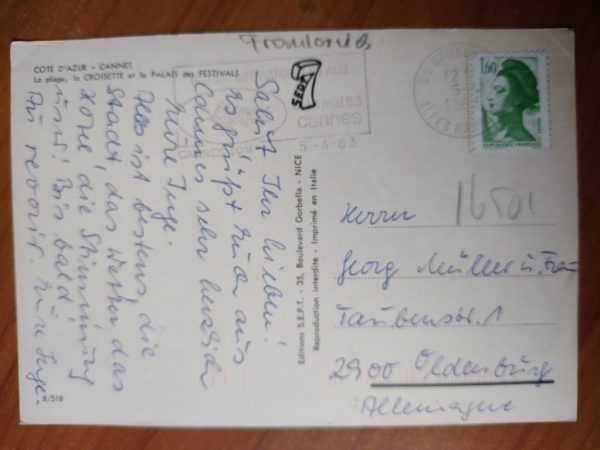 Frankreich
COTE D'AZUR - CANNES
La plage, la CROISETTE et le PALAIS des FESTIVALS
Salut Ihr Lieben!
Es grüßt Euch aus
Cannes sehr herzlich
Eure Inge.
Alles ist bestens, die
Stadt, das Wetter, das
Hotel, die Stimmung
u.s.w. Bis bald
Au revoir. Eure Inge.
8/518
SEPT
7
mai 83
cannes
5-4-83
Editions S.E.P.T. - 35, Boulevard Gorbella - NICE
Reproduction interdite - Imprimé en Italie
1,60
16501
Herrn
Georg Müller u. Frau
Taubenstr. 1
2900 Oldenburg
Allemagne